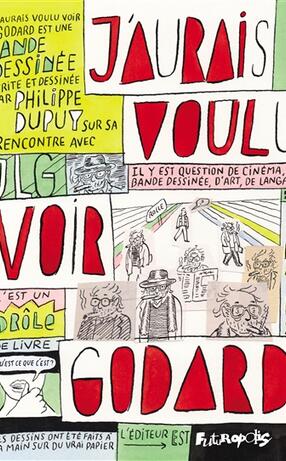 J'AURAIS VOULU VOIR
GODARD EST UNE
BANDE
DESSINÉE
ÉCRITE ET DESSINÉE
PAR PHILIPPE
DUPUY SUR SA
RENCONTRE AVEC
JLG
J'AURAIS
VOULU
IL Y EST QUESTION DE CINÉMA,
BANDE DESSINÉE, D'ART, DE LANGA
ROLLE
VOIR
C'EST UN
DRÔLE
DE LIVRE
QU'EST CE QUE C'EST?
GODARD
LES DESSINS ONT ÉTÉ FAITS À
LA MAIN SUR DU VRAI PAPIER
L'ÉDITEUR EST
FUTUROPOLIS